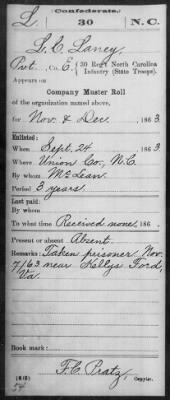 Confederate.
L 30 N.C.
L. C. Laney
Pvt., Co. E, 30 Reg't North Carolina
Infantry (State Troops).
Appears on
Company Muster Roll
of the organization named above,
for Nov. & Dec., 1863
Enlisted:
When Sept. 24, 1863
Where Union Co., N.C.
By whom McLean
Period 3 years.
Last paid:
By whom
To what time Received none, 186 .
Present or absent Absent.
Remarks: Taken prisoner Nov.
7/63 near Kellys Ford,
Va.
Book mark:
F.C. Pratz,
Copyist.